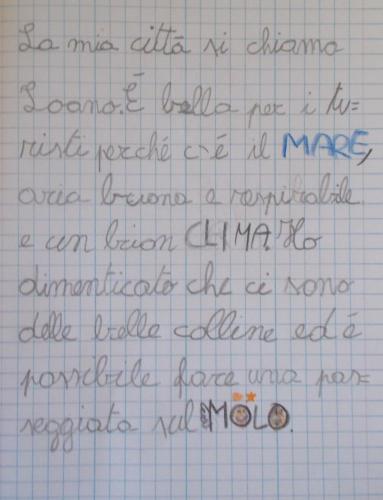 La mia città si chiama
Loano. É bella per i tu=
risti perché c'é il MARE,
aria buona e respirabile
e un buon CLIMA. Ho
dimenticato che ci sono
delle belle colline ed é
possibile fare una pas=
seggiata sul MOLO.